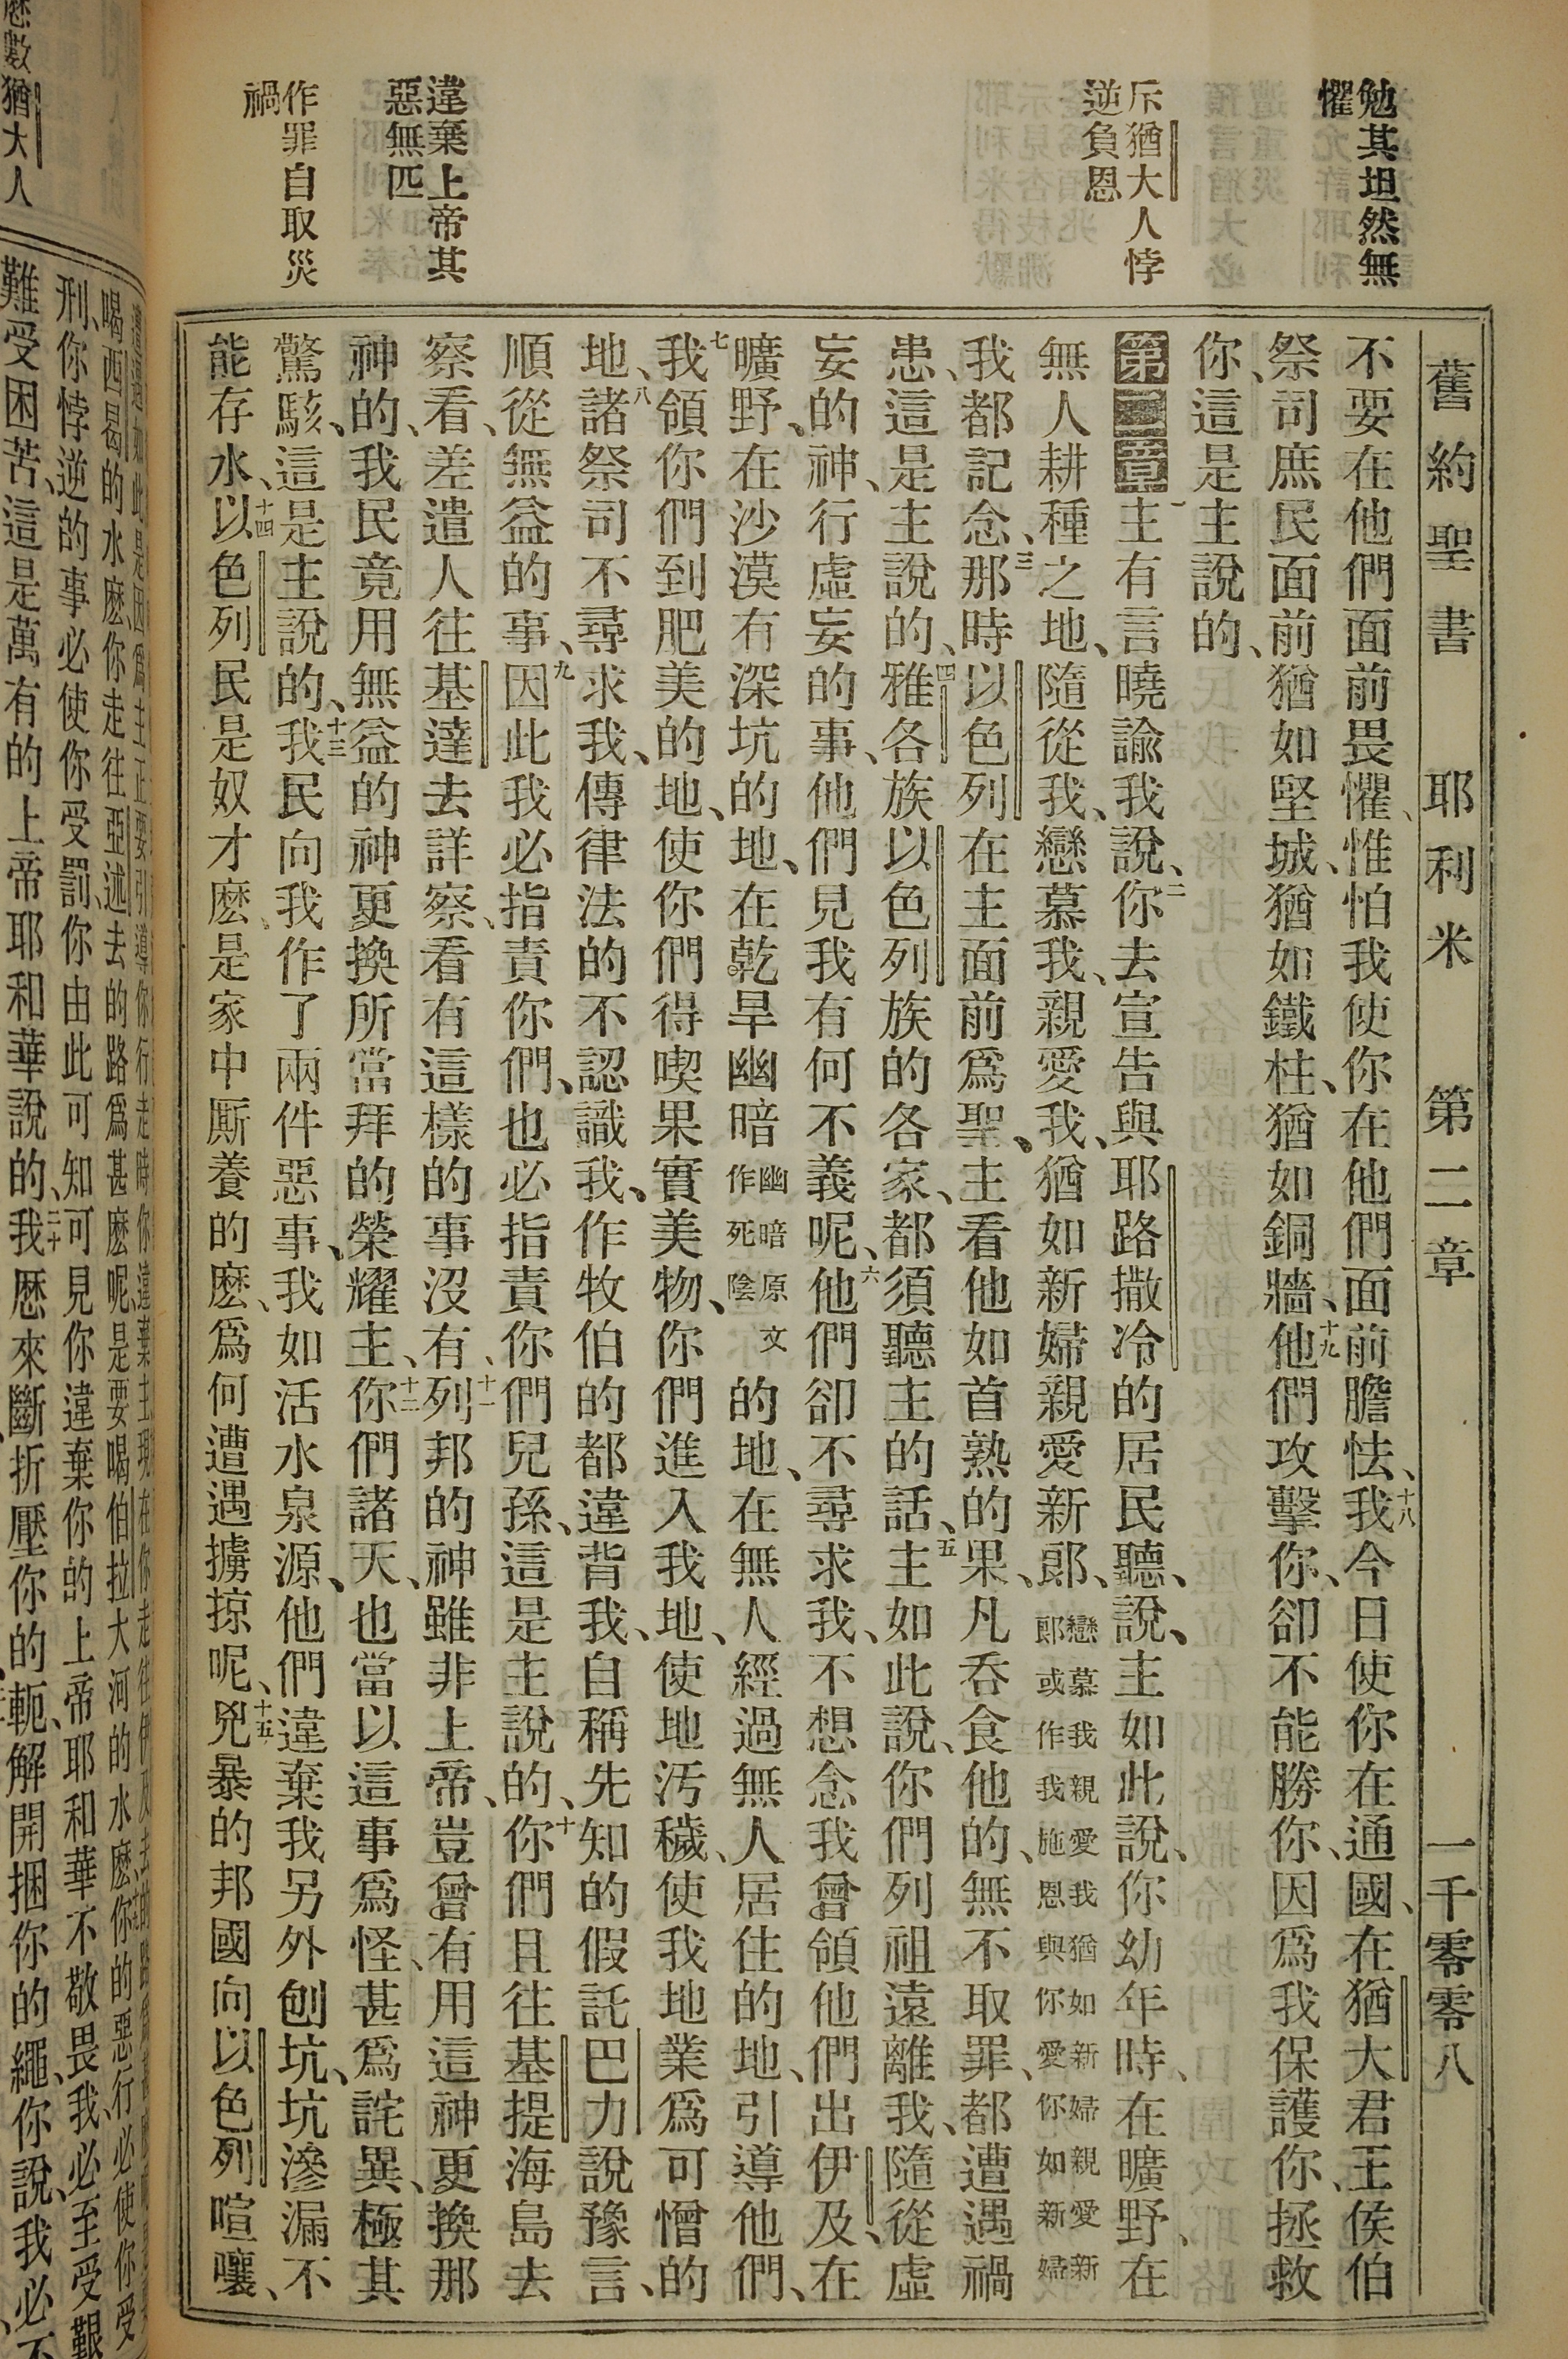 舊約聖書 耶利米 第二章 一千零零八
勉其坦然無
懼
斥猶大人悖
逆負恩
違棄上帝其
惡無匹
作罪自取災
禍
不要在他們面前畏懼、惟怕我使你在他們面前膽怯、十八我今日使你在通國、在猶大君王侯伯
祭司庶民面前猶如堅城、猶如鐵柱、猶如銅牆、十九他們攻擊你、卻不能勝你、因爲我保護你、拯救
你、這是主說的、
第二章一主有言曉諭我說、二你去宣告與耶路撒冷的居民聽、說、主如此說、你幼年時、在曠野、在
無人耕種之地、隨從我、戀慕我、親愛我、猶如新婦親愛新郎、戀慕我親愛我猶如新婦親愛新郎或作我施恩與你愛你如新婦
我都記念、三那時以色列在主面前爲聖、主看他如首熟的果、凡吞食他的、無不取罪、都遭遇禍
患、這是主說的、四雅各族以色列族的各家、都須聽主的話、五主如此說、你們列祖遠離我、隨從虛
妄的神、行虛妄的事、他們見我有何不義呢、六他們卻不尋求我、不想念我曾領他們出伊及、在
曠野、在沙漠有深坑的地、在乾旱幽暗幽暗原文作死陰的地、在無人經過無人居住的地、引導他們、
七我領你們到肥美的地、使你們得喫果實美物、你們進入我地、使地汚穢、使我地業爲可憎的
地、八諸祭司不尋求我、傳律法的不認識我、作牧伯的都違背我、自稱先知的假託巴力說豫言、
順從無益的事、九因此我必指責你們、也必指責你們兒孫、這是主說的、十你們且往基提海島去
察看、差遣人往基達去詳察、看有這樣的事沒有、十一列邦的神雖非上帝、豈曾有用這神更換那
神的、我民竟用無益的神更換所當拜的榮耀主、十二你們諸天、也當以這事爲怪、甚爲詫異、極其
驚駭、這是主說的、十三我民向我作了兩件惡事、我如活水泉源、他們違棄我、另外刨坑、坑滲漏不
能存水、十四以色列民是奴才麽、是家中厮養的麽、爲何遭遇擄掠呢、十五兇暴的邦國向以色列喧嚷、
歷數猶大人
喝西曷的水麽、你走往亞述去的路爲甚麽呢、是要喝伯拉大河的水麽、你的惡行、必使你受
刑、你悖逆的事必使你受罰、你由此可知可見你違棄你的上帝耶和華不敬畏我、必至受艱
難受困苦、這是萬有的上帝耶和華說的、二十我歷來斷折壓你的軛、解開捆你的繩、你說、我必不